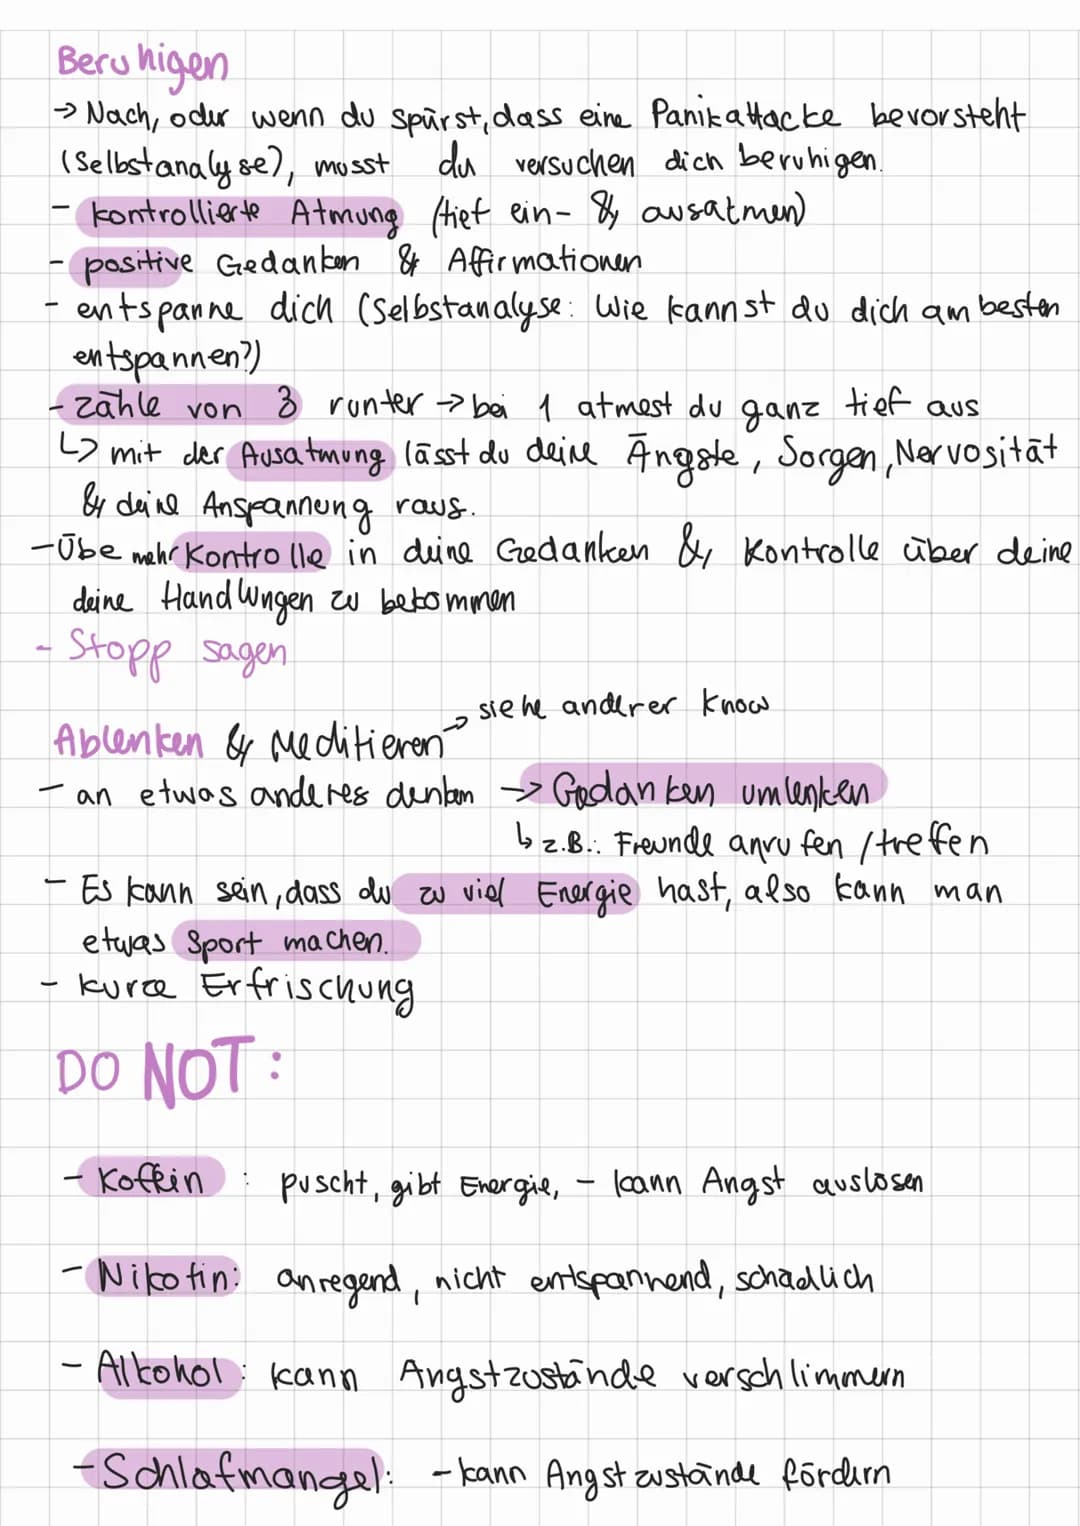 Beruhigen
→ Nach, oder wenn du spürst, dass eine Panikattacke bevorsteht
(Selbstanalyse), musst du versuchen dich beruhigen.
- kontrollierte Atmung (tief ein- & ausatmen)
- positive Gedanken & Affirmationen
- entspanne dich (Selbstanalyse: Wie kannst du dich am besten
entspannen?)
- zähle von 3 runter → bei 1 atmest du ganz tief aus
↳ mit der Ausatmung lässt du deine Ängste, Sorgen, Nervosität
& deine Anspannung raus.
- Übe mehr Kontrolle in deine Gedanken & Kontrolle über deine
deine Handlungen zu bekommen
- Stopp sagen
→ siehe anderer Know
Ablenken & Meditieren
- an etwas anderes denken → Gedanken umlenken
↳ z.B.: Freunde anrufen / treffen
- Es kann sein, dass du zu viel Energie hast, also kann man
etwas Sport machen.
- kurze Erfrischung
DO NOT:
- Koffein : puscht, gibt Energie, - kann Angst auslösen
- Nikotin: anregend, nicht entspannend, schädlich
- Alkohol: kann Angstzustände verschlimmern
- Schlafmangel: - kann Angstzustände fördern